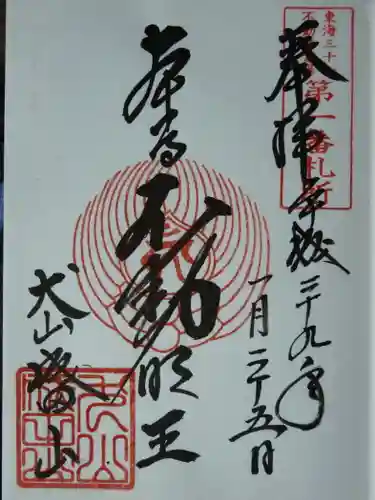 東海三十
不動
第一番札所
奉拝
平成二十九年
一月二十五日
本尊不動明王
犬山成田山